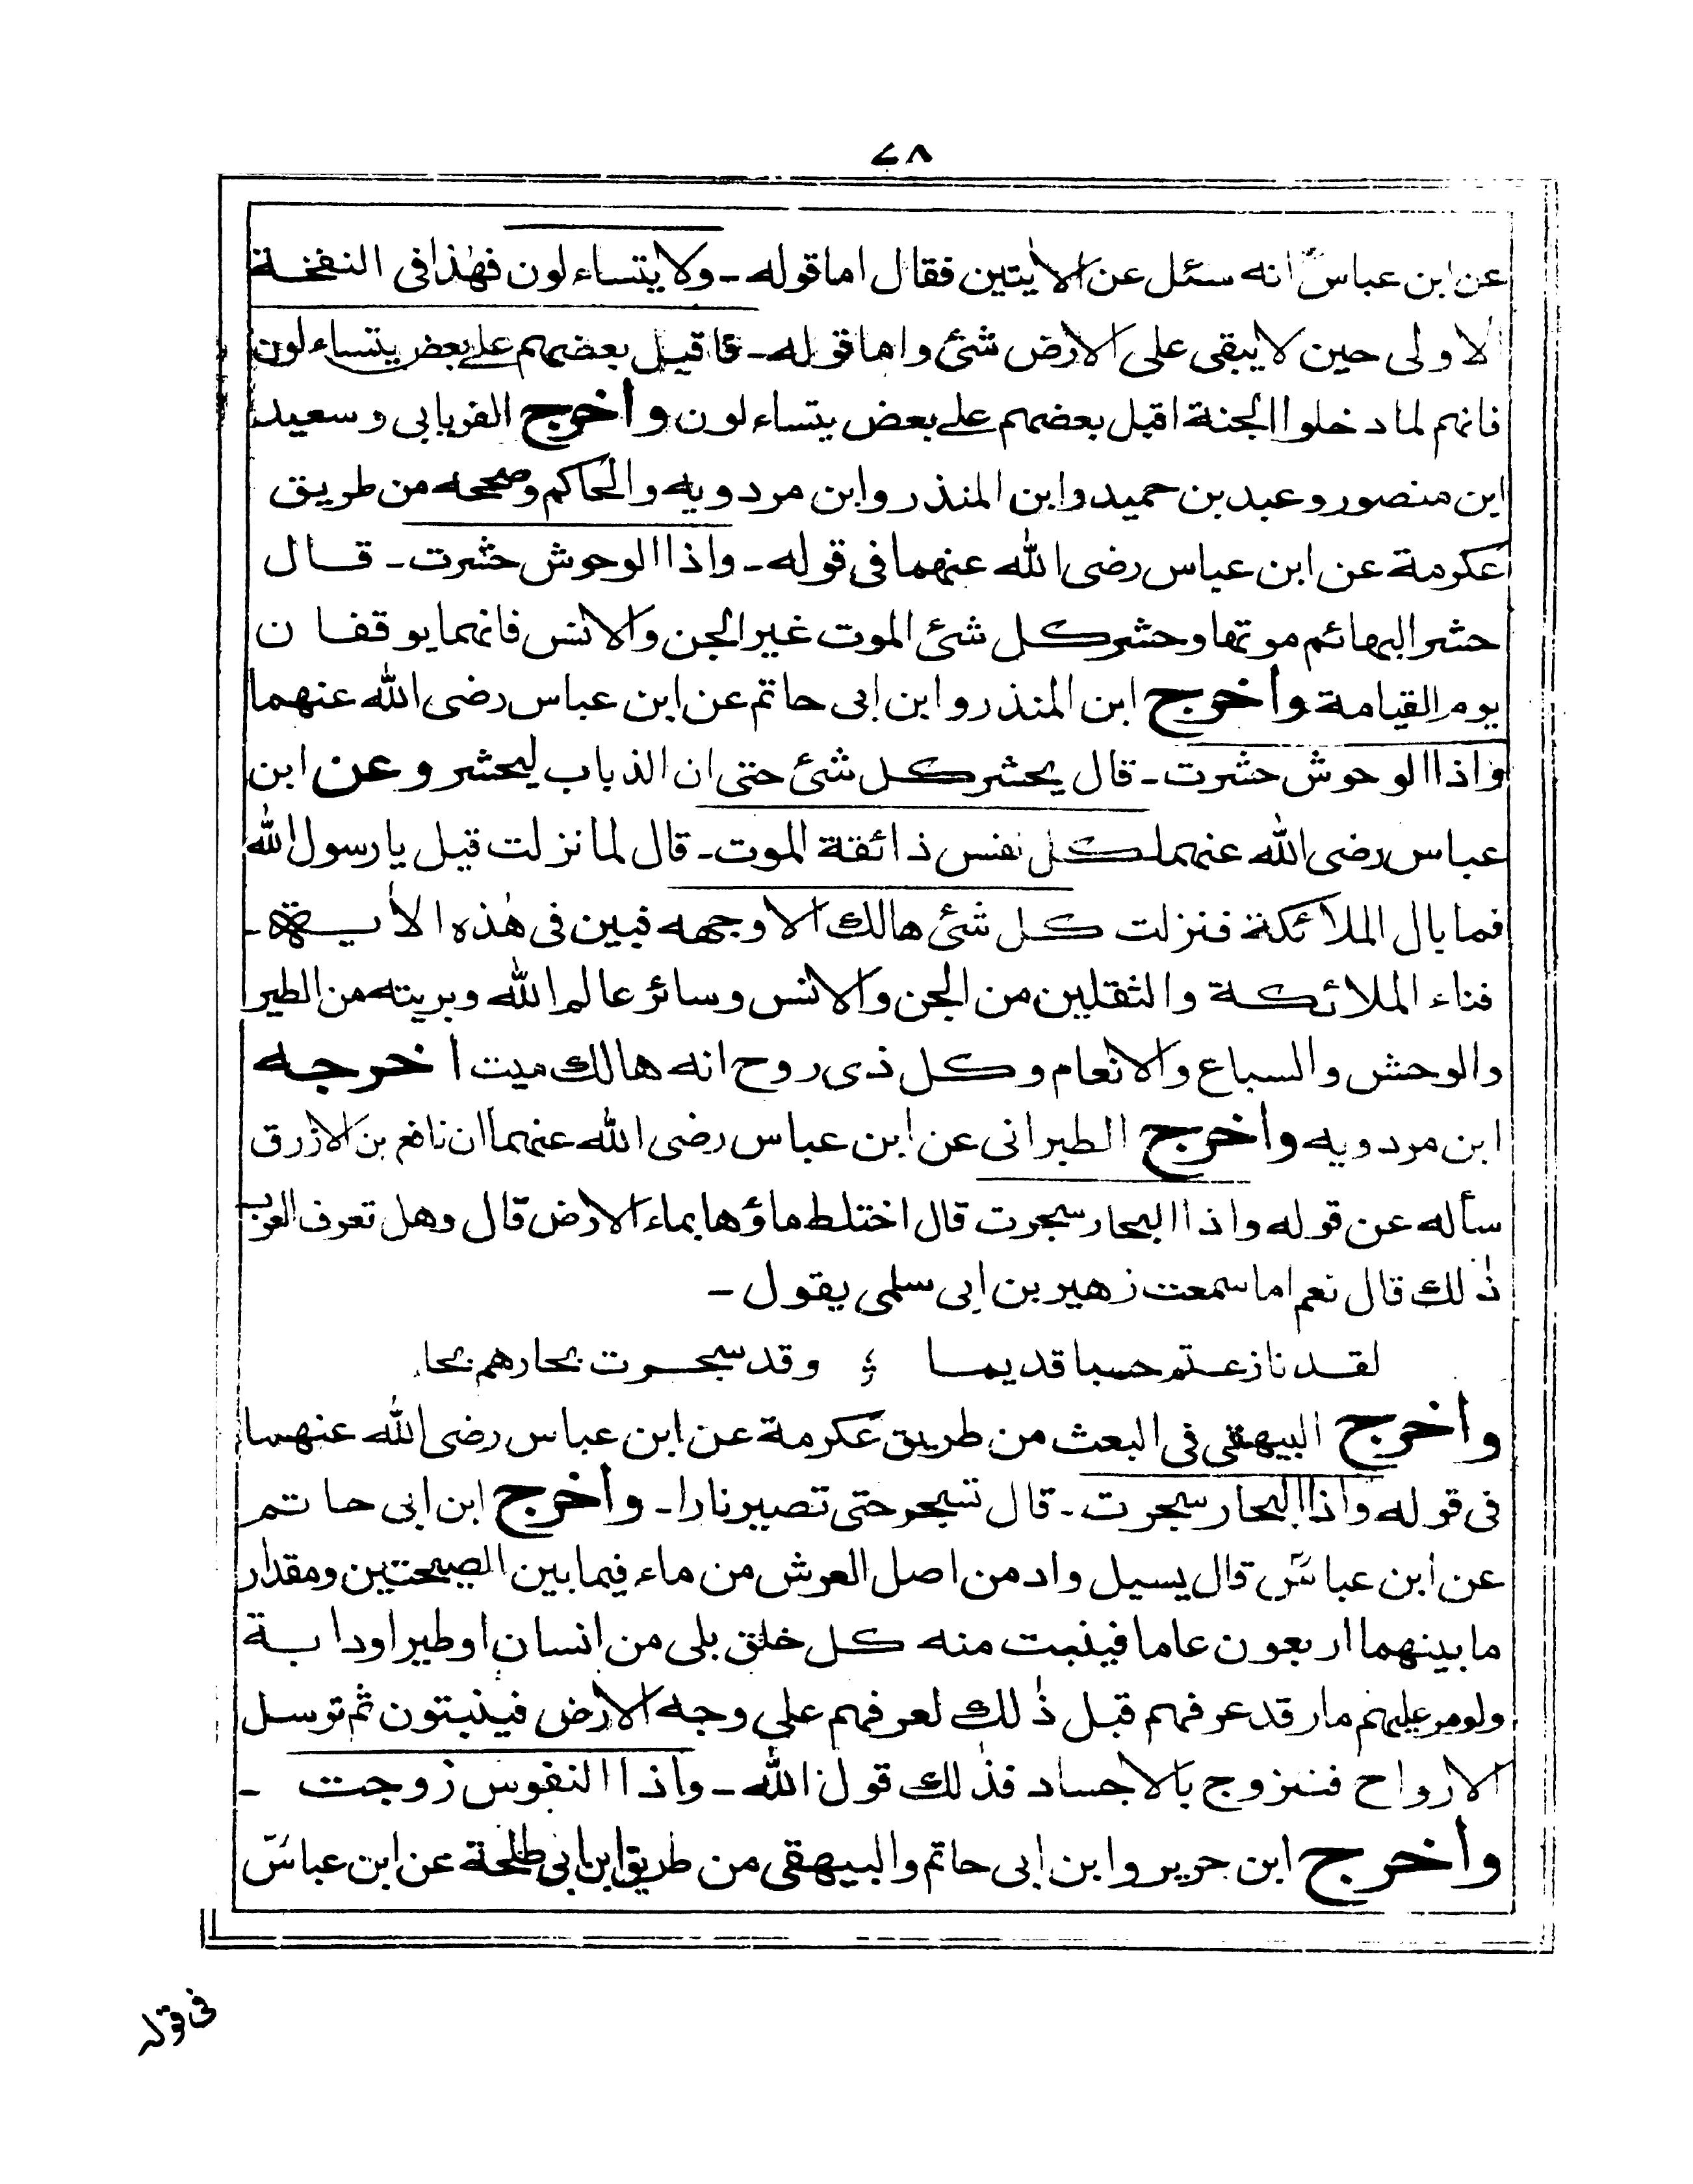 ٧٨
عن ابن عباس انه سئل عن الايتين فقال اما قوله ـ ولا يتساءلون فهذا فى النفخة
الاولى حين لا يبقى على الارض شئ واما قوله ـ فاقبل بعضهم على بعض يتساءلون
فانهم لما دخلوا الجنة اقبل بعضهم على بعض يتساءلون وأخرج الفريابى وسعيد
ابن منصور وعبد بن حميد وابن المنذر وابن مردويه والحاكم وصححه من طريق
عكرمة عن ابن عباس رضى الله عنهما فى قوله ـ واذا الوحوش حشرت ـ قال
حشر البهائم موتها وحشر كل شئ الموت غير الجن والانس فانهما يوقفان
يوم القيامة وأخرج ابن المنذر وابن ابى حاتم عن ابن عباس رضى الله عنهما
واذا الوحوش حشرت ـ قال يحشر كل شئ حتى ان الذباب ليحشر وعن ابن
عباس رضى الله عنهما كل نفس ذائقة الموت ـ قال لما نزلت قيل يا رسول الله
فما بال الملآئكة فنزلت كل شئ هالك الا وجهه فبين فى هٰذه الأية ـ
فناء الملائكة والثقلين من الجن والانس وسائر عالم الله وبريته من الطير
والوحش والسباع والانعام وكل ذى روح انه هالك ميت اخرجه
ابن مردويه وأخرج الطبرانى عن ابن عباس رضى الله عنهما ان نافع بن الازرق
سأله عن قوله واذا البحار سجرت قال اختلط ماؤها بماء الارض قال وهل تعرف العرب
ذٰلك قال نعم اما سمعت زهير بن ابى سلمى يقول ـ
لقد نازعتم حسبا قديما ؛ وقد سجرت بحارهم بحا
وأخرج البيهقى فى البعث من طريق عكرمة عن ابن عباس رضى الله عنهما
فى قوله واذا البحار سجرت ـ قال تسجر حتى تصير نارا ـ وأخرج ابن ابى حاتم
عن ابن عباس قال يسيل واد من اصل العرش من ماء فيما بين الصيحتين ومقدار
ما بينهما اربعون عاما فينبت منه كل خلق بلى من انسان او طير او دابة
ولو مر عليهم مار قد عرفهم قبل ذٰلك لعرفهم على وجه الارض فينبتون ثم ترسل
الارواح فتزوج بالاجساد فذلك قول الله ـ واذا النفوس زوجت ـ
وأخرج ابن جرير وابن ابى حاتم والبيهقى من طريق ابن ابى طلحة عن ابن عباس
فى قوله